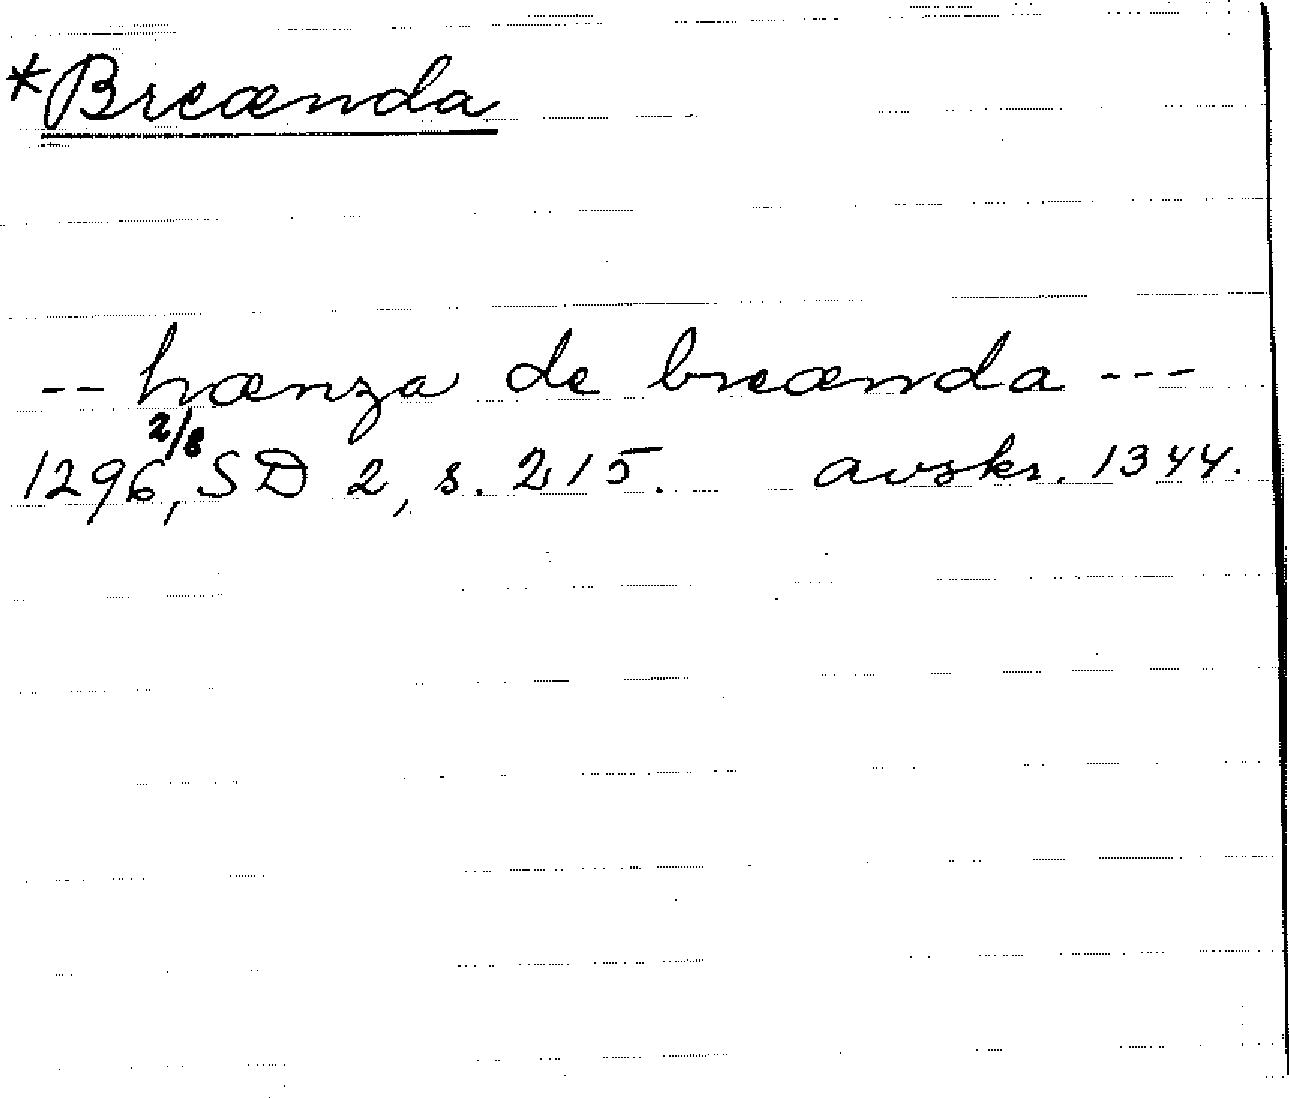 *Breænda
-- hænza de breænda ---
1296 2/8, SD 2, s. 215. avskr. 1344.